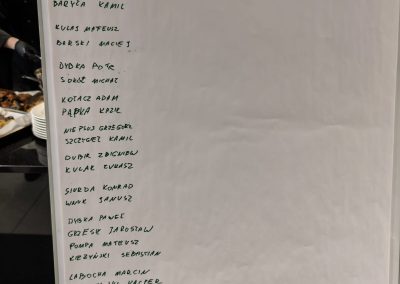 DARYŁA KAMIL
KULAS MATEUSZ
BARSKI MACIEJ
DYBKA
SOKÓŁ MICHAŁ
KOTACZ ADAM
KAZIK
GRZEGORZ
SZCZYGIEŁ KAMIL
DUBIR ZBIGNIEW
KULAK ŁUKASZ
SIURDA KONRAD
WNUK JANUSZ
DYBKA PAWEŁ
GRZESIK JAROSŁAW
POMPA MATEUSZ
KIEŻYŃSKI SEBASTIAN
LABOCHA MARCIN
KACPER